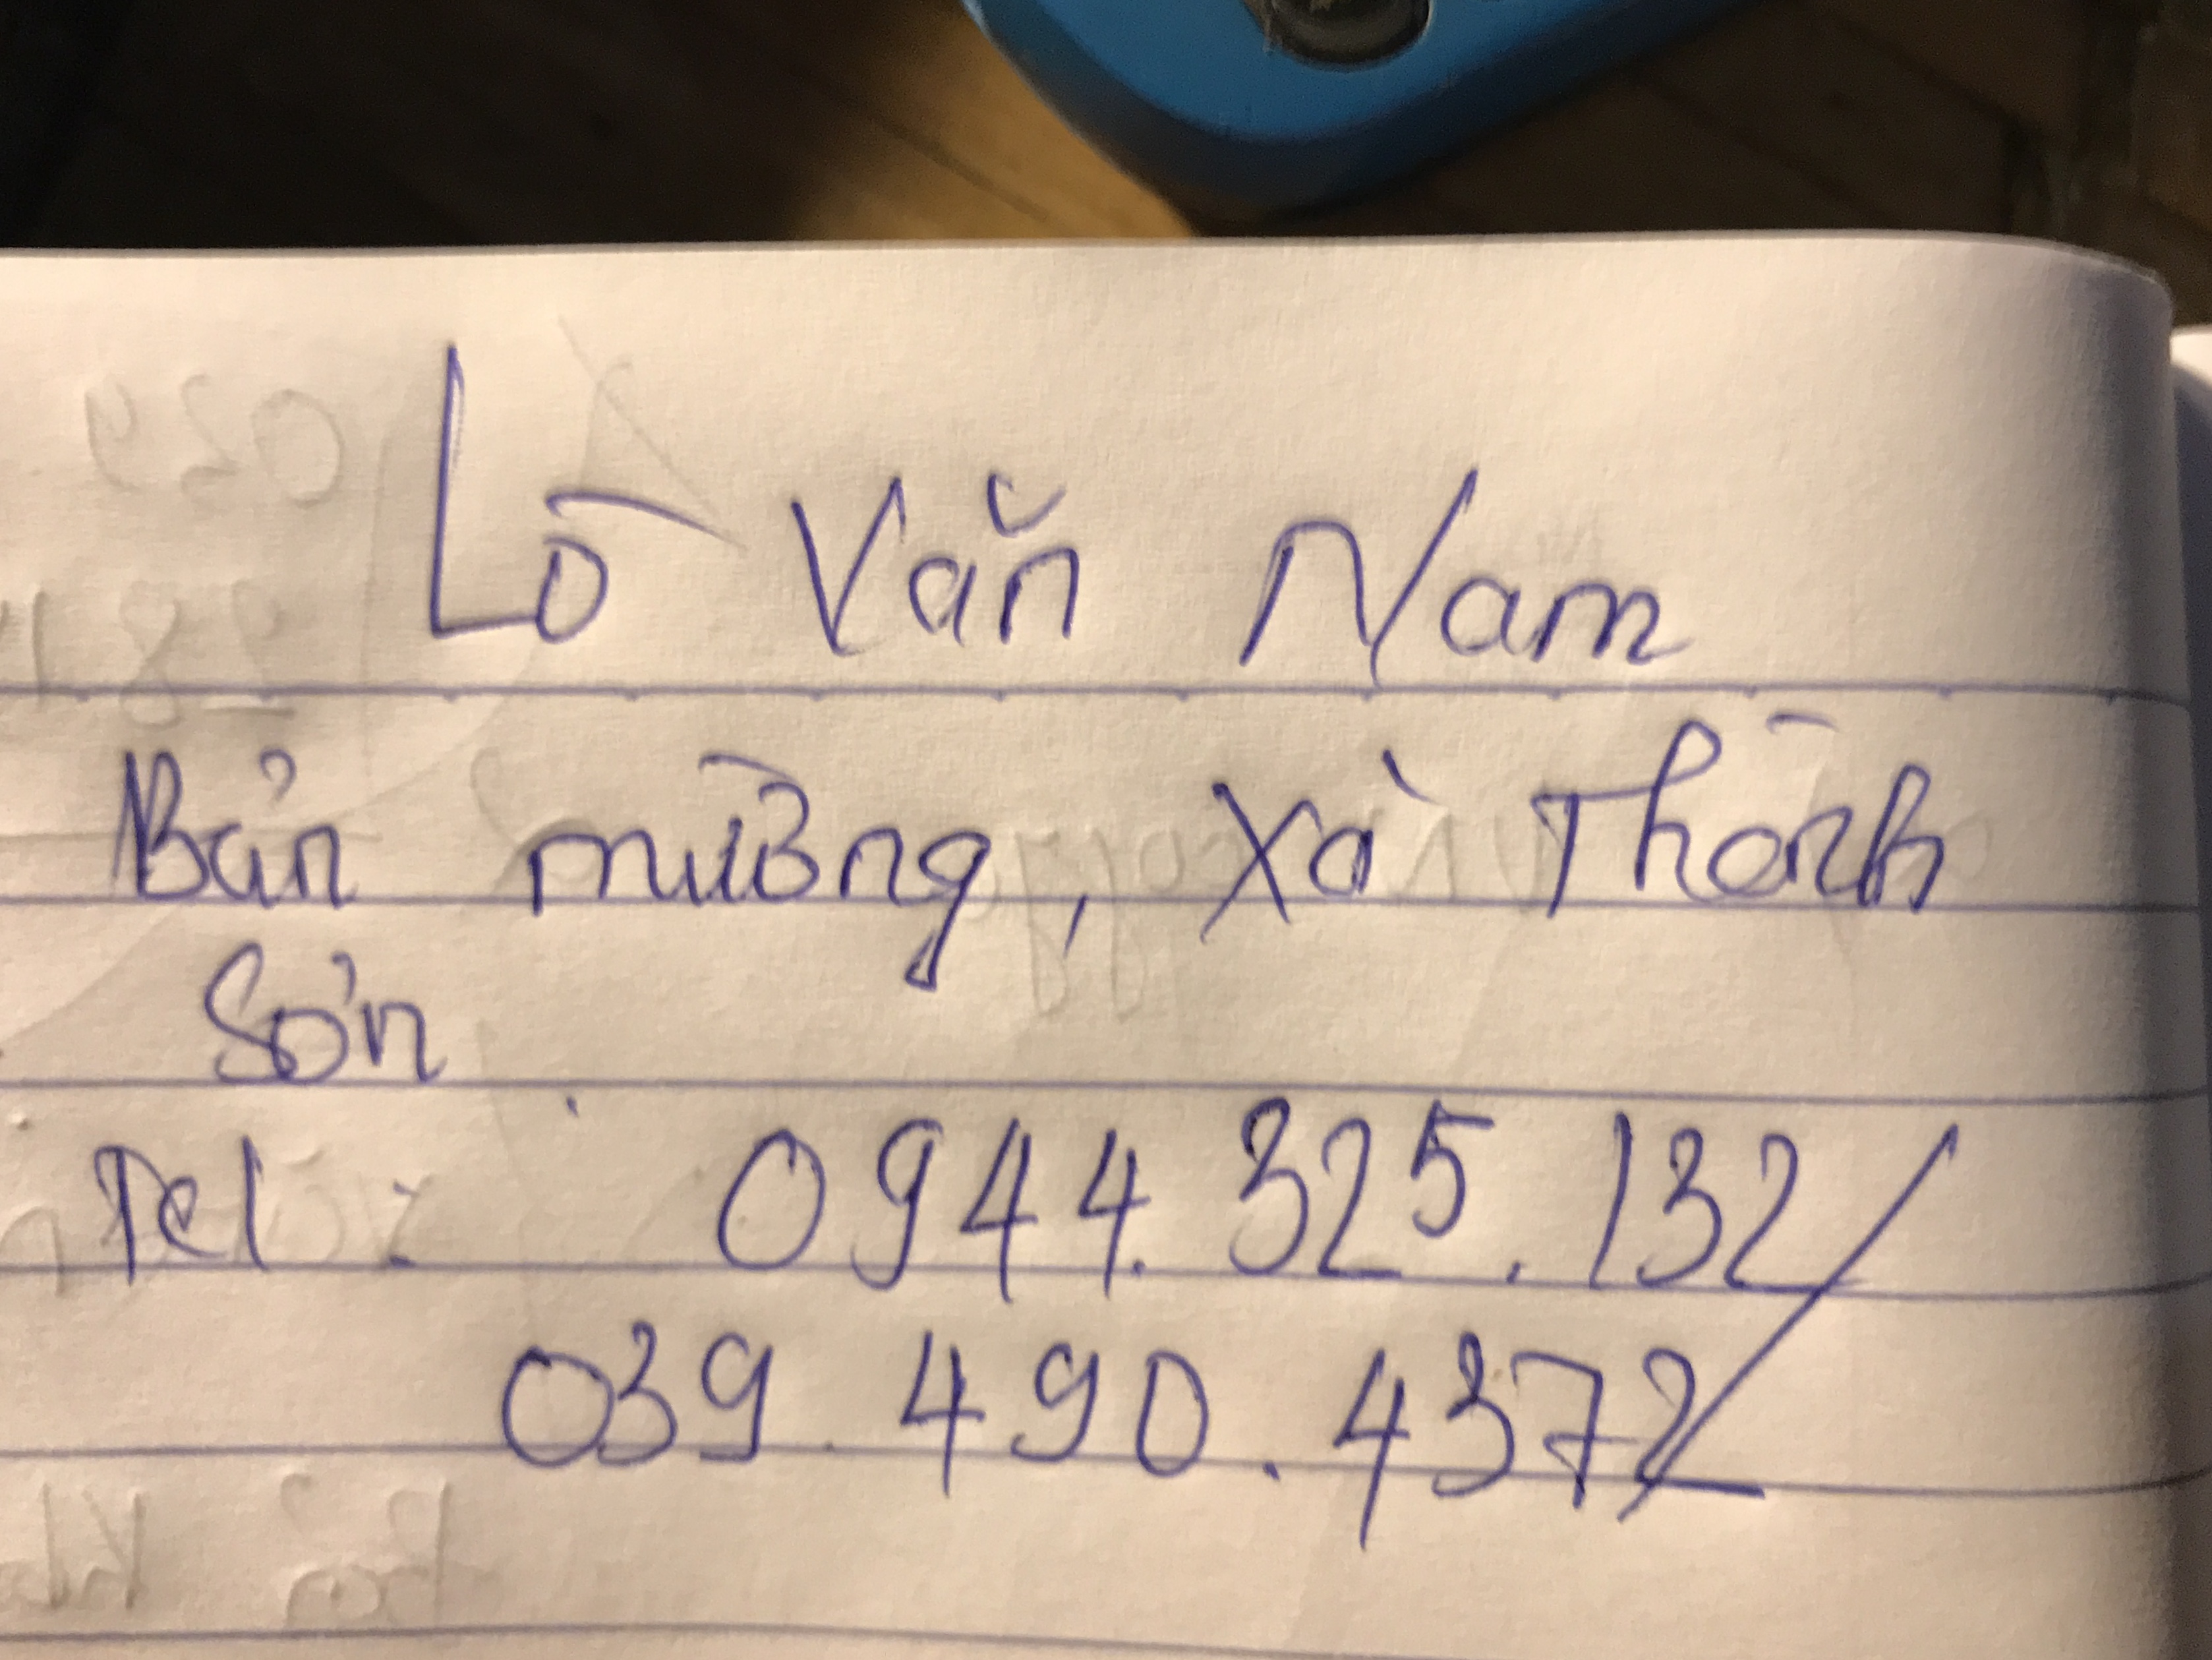 Lò Văn Nam
Bản mường, Xà Thành
Sơn
Tel : 0944.325.132/
039.490.4372